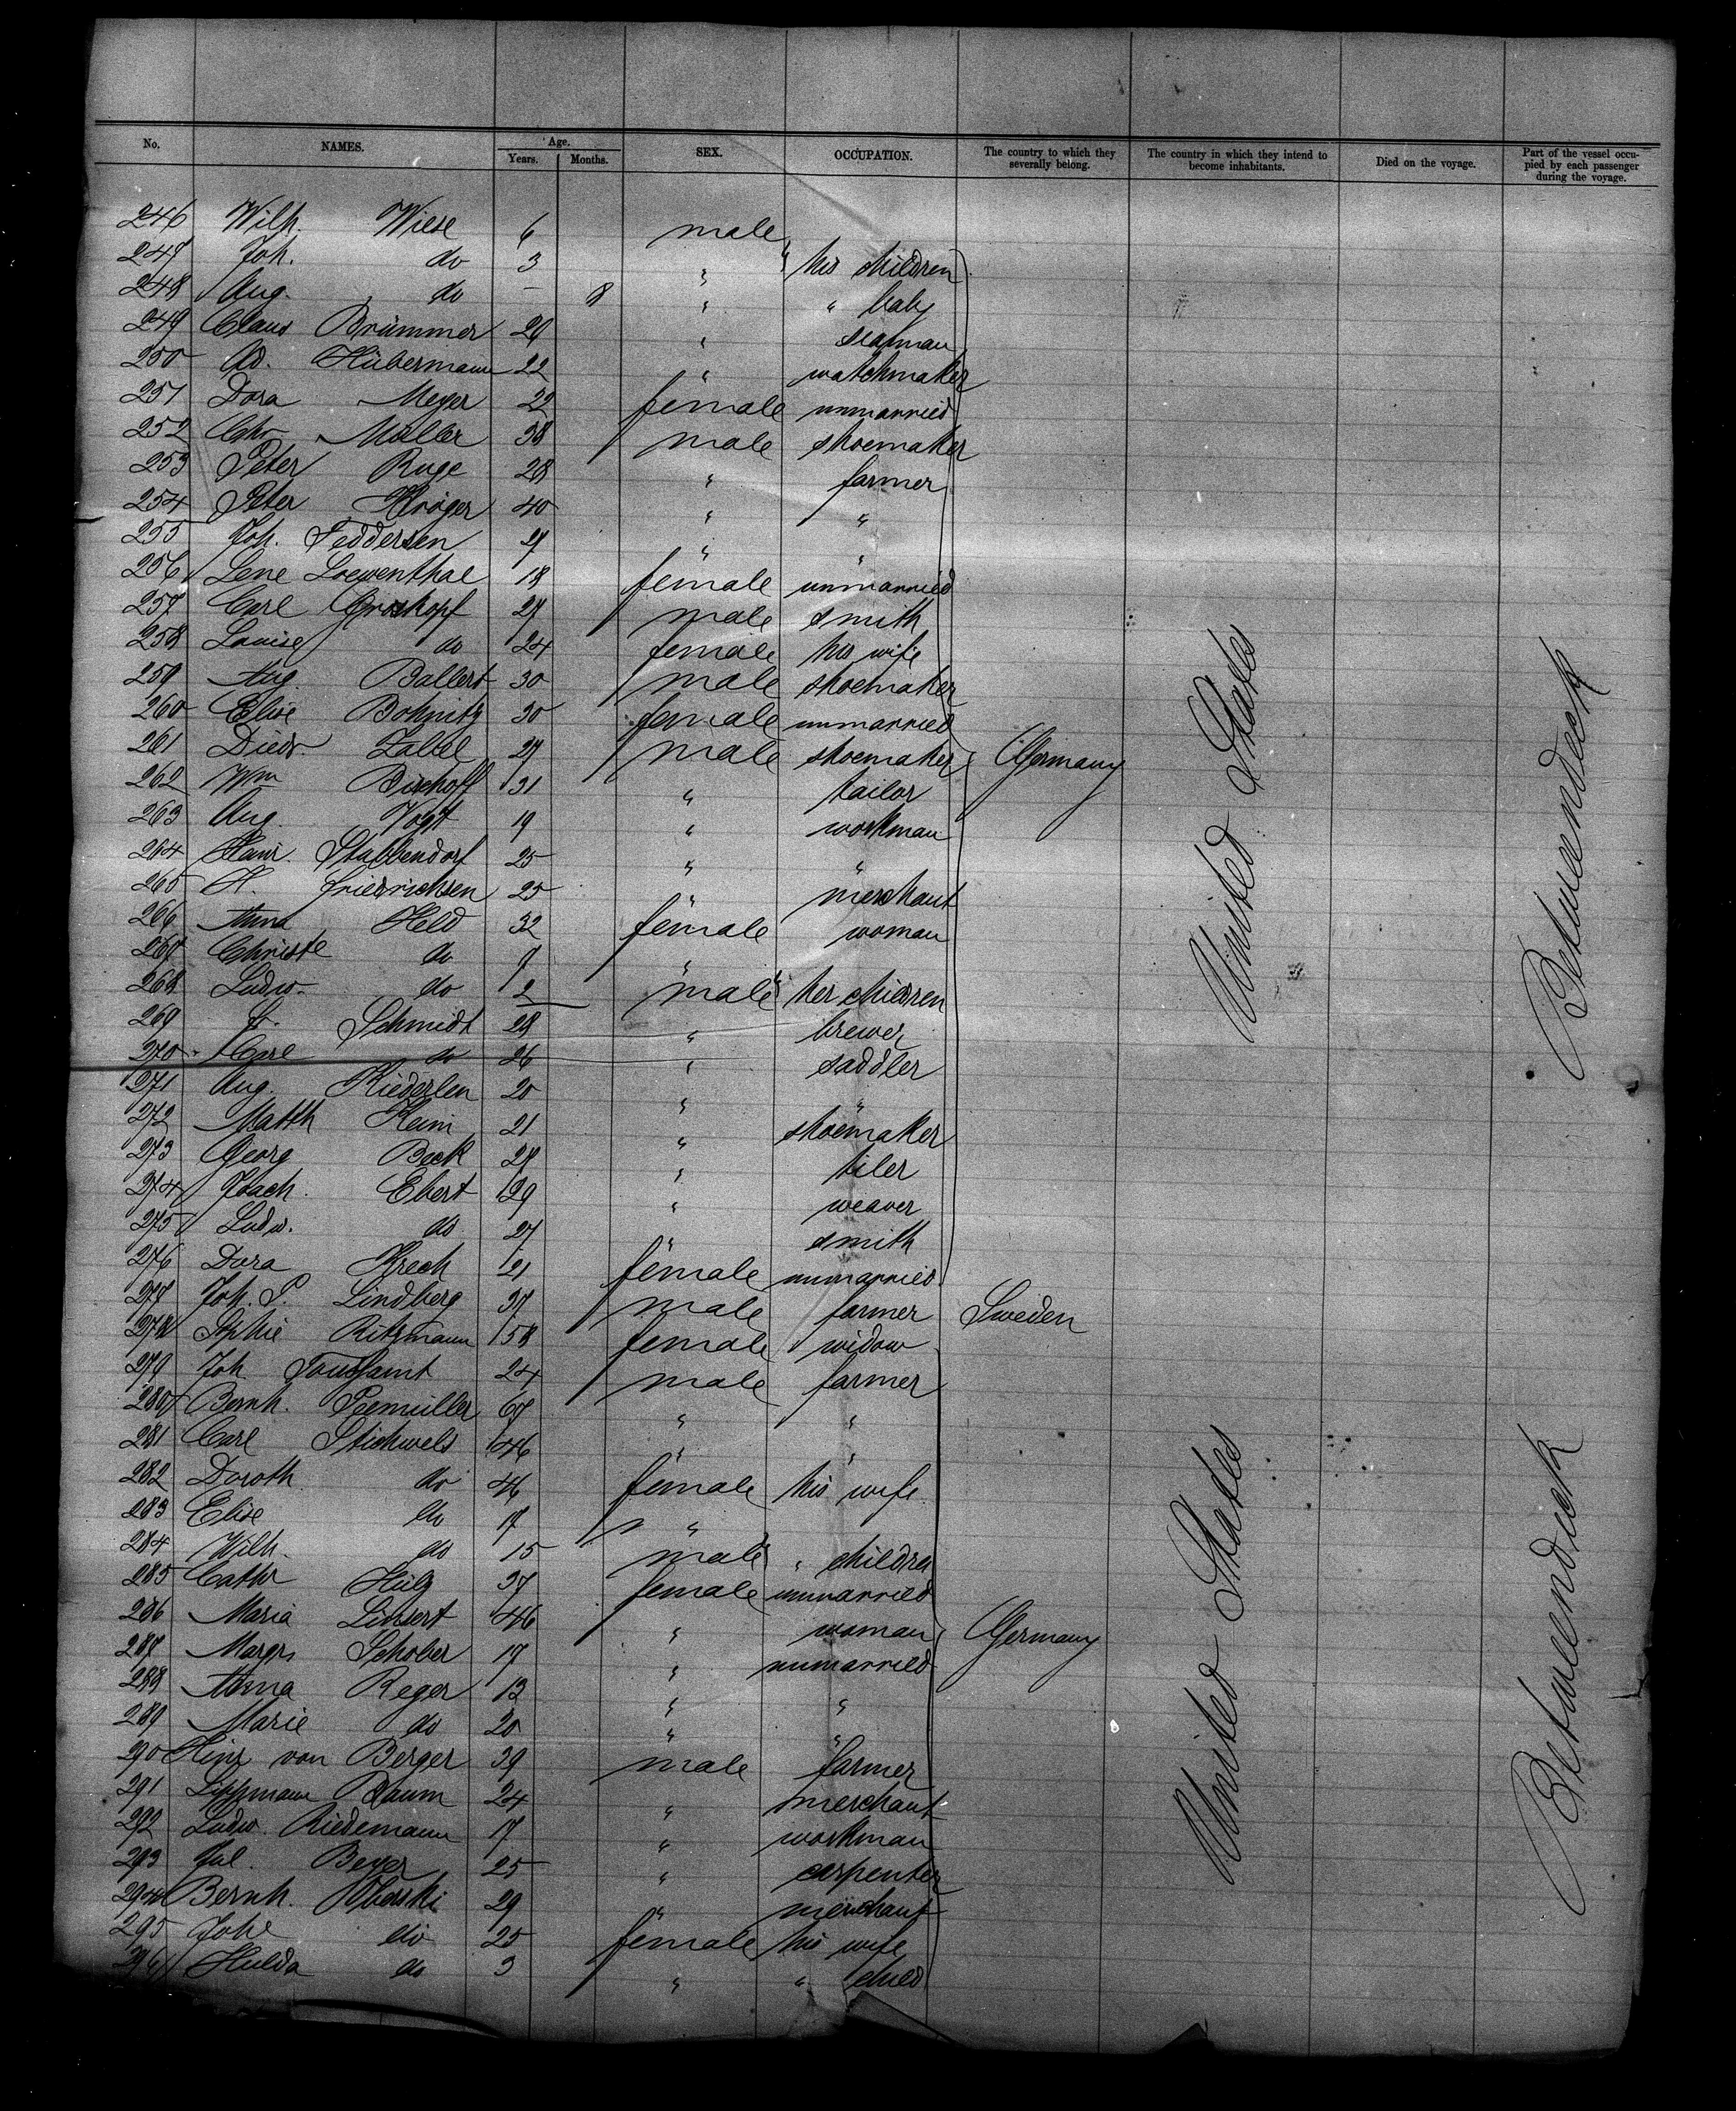 No. NAMES. Age. Years. Months. SEX. OCCUPATION. The country to which they severally belong. The country in which they intend to become inhabitants. Died on the voyage. Part of the vessel occupied by each passenger during the voyage.
246 Wilh. Wiese 6 male
247 Joh. do 3 " his children
248 Aug. do – 8 " " baby
249 Claus Brümmer 26 " seaman
250 Ad. Hübermann 22 " watchmaker
251 Dora Meyer 22 female unmarried
252 Chr Möller 38 male shoemaker
253 Peter Ruge 28 " farmer
254 Peter Kröger 40 " "
255 Joh. Feddersen 27 " "
256 Lene Loewenthal 18 female unmarried
257 Carl Groskopf 27 male smith
258 Louise do 24 female his wife
259 Aug. Ballert 30 male shoemaker
260 Elise Bohnitz 30 female unmarried
261 Diedr. Zabel 27 male shoemaker Germany United States Betweendeck
262 Wm Bischoff 31 " tailor
263 Aug. Vogt 19 " workman
264 Hans Stubbendorf 25 " "
265 H. Friedrichsen 25 " merchant
266 Anna Held 32 female woman
267 Christe do 9 "
268 Ludw. do 2 male her children
269 Schmidt 28 " brewer
270 Carl do 26 " saddler
271 Aug. Kiederlen 20 " "
272 Matth Keim 21 " shoemaker
273 Georg Beck 27 " tiler
274 Joach. Ebert 29 " weaver
275 Ludw. do 27 " smith
276 Dora Krech 21 female unmarried
277 Joh. P. Lindberg 37 male farmer Sweden
278 Sophie Ritzmann 58 female widow
279 Joh Toussaint 24 male farmer
280 Bernh. Seemüller 67 " "
281 Carl Stichwels 46 " "
282 Doroth. do 46 female his wife
283 Elise do 17 "
284 Wilh. do 15 male " children
285 Cathr Hülz 37 female unmarried
286 Maria Linsert 46 " woman Germany United States Betweendeck
287 Margr. Schober 17 " unmarried
288 Anna Reger 13 " "
289 Marie do 20 " "
290 Hinr von Berger 39 male farmer
291 Lippmann Baum 24 " merchant
292 Ludw. Riedemann 17 " workman
293 Jul. Beyer 25 " carpenter
294 Bernh. Oberski 29 " merchant
295 Johe do 25 female his wife
296 Hulda do 3 " " child